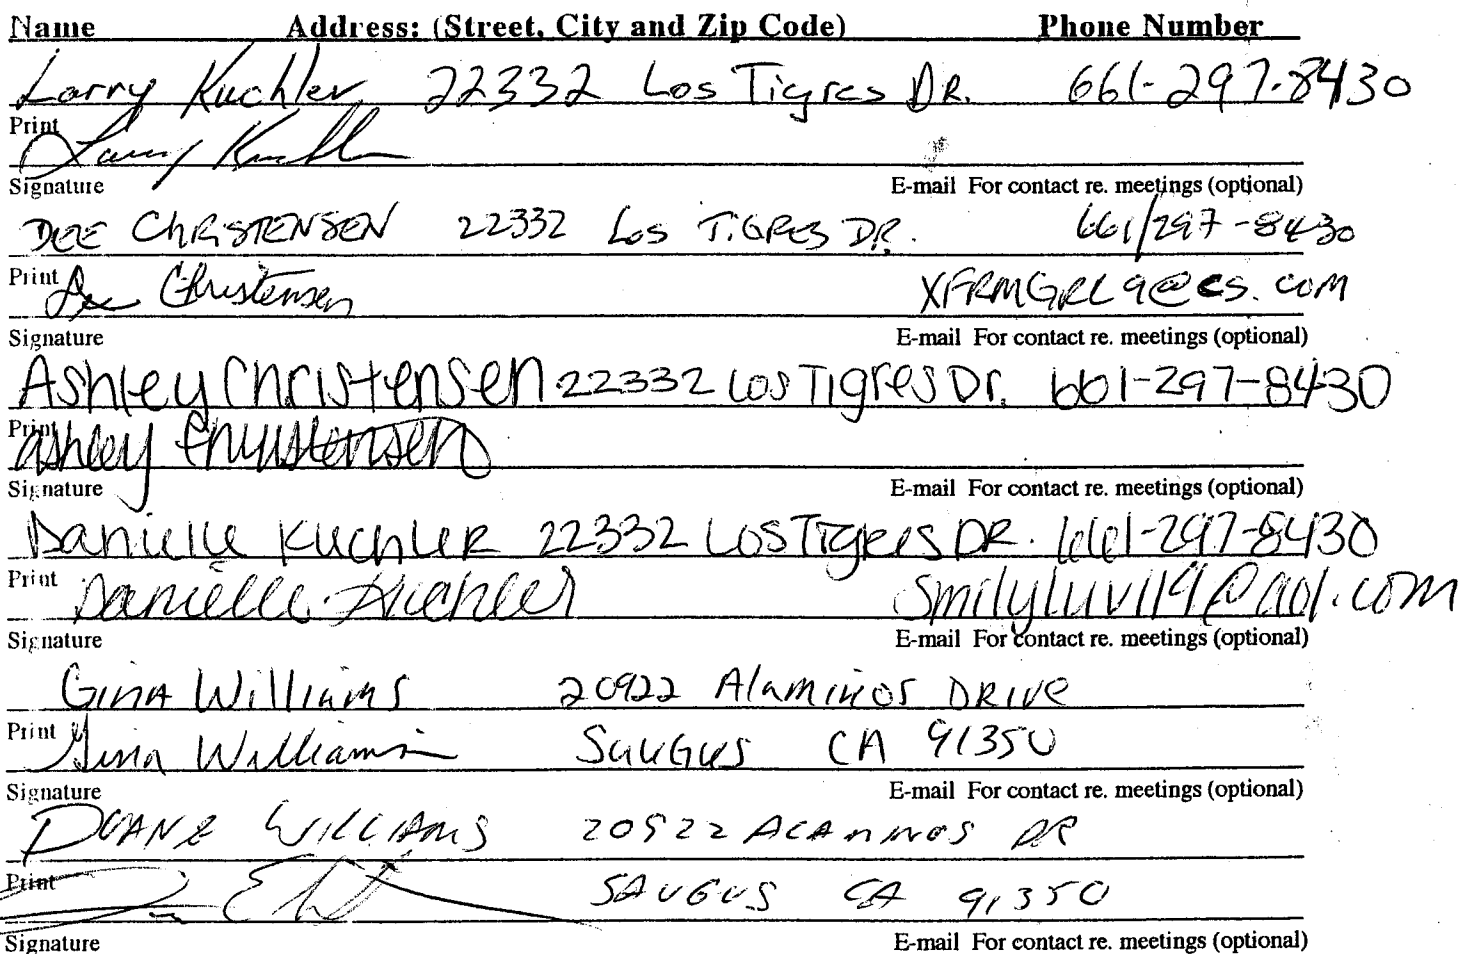 Name Address: (Street, City and Zip Code) Phone Number
Larry Kuchler 22332 Los Tigres DR. 661-297-8430
Print
Larry Kuchler
Signature E-mail For contact re. meetings (optional)
DEE ChRISTENSEN 22332 Los TIGRES DR. 661/297-8430
Print Dee Christensen XFRMGRL9@cs.com
Signature E-mail For contact re. meetings (optional)
Ashley Christensen 22332 Los Tigres Dr. 661-297-8430
Print
Ashley Christensen
Signature E-mail For contact re. meetings (optional)
Danielle Kuchler 22332 Los Tigres DR. 661-297-8430
Print Danielle Kuchler smilyluv119@aol.com
Signature E-mail For contact re. meetings (optional)
Gina Williams 20922 Alaminos DRIVE
Print Gina Williams SauGus CA 91350
Signature E-mail For contact re. meetings (optional)
DUANE WILLIAMS 20922 ALAMINOS DR
Print SAUGUS CA 91350
Signature E-mail For contact re. meetings (optional)